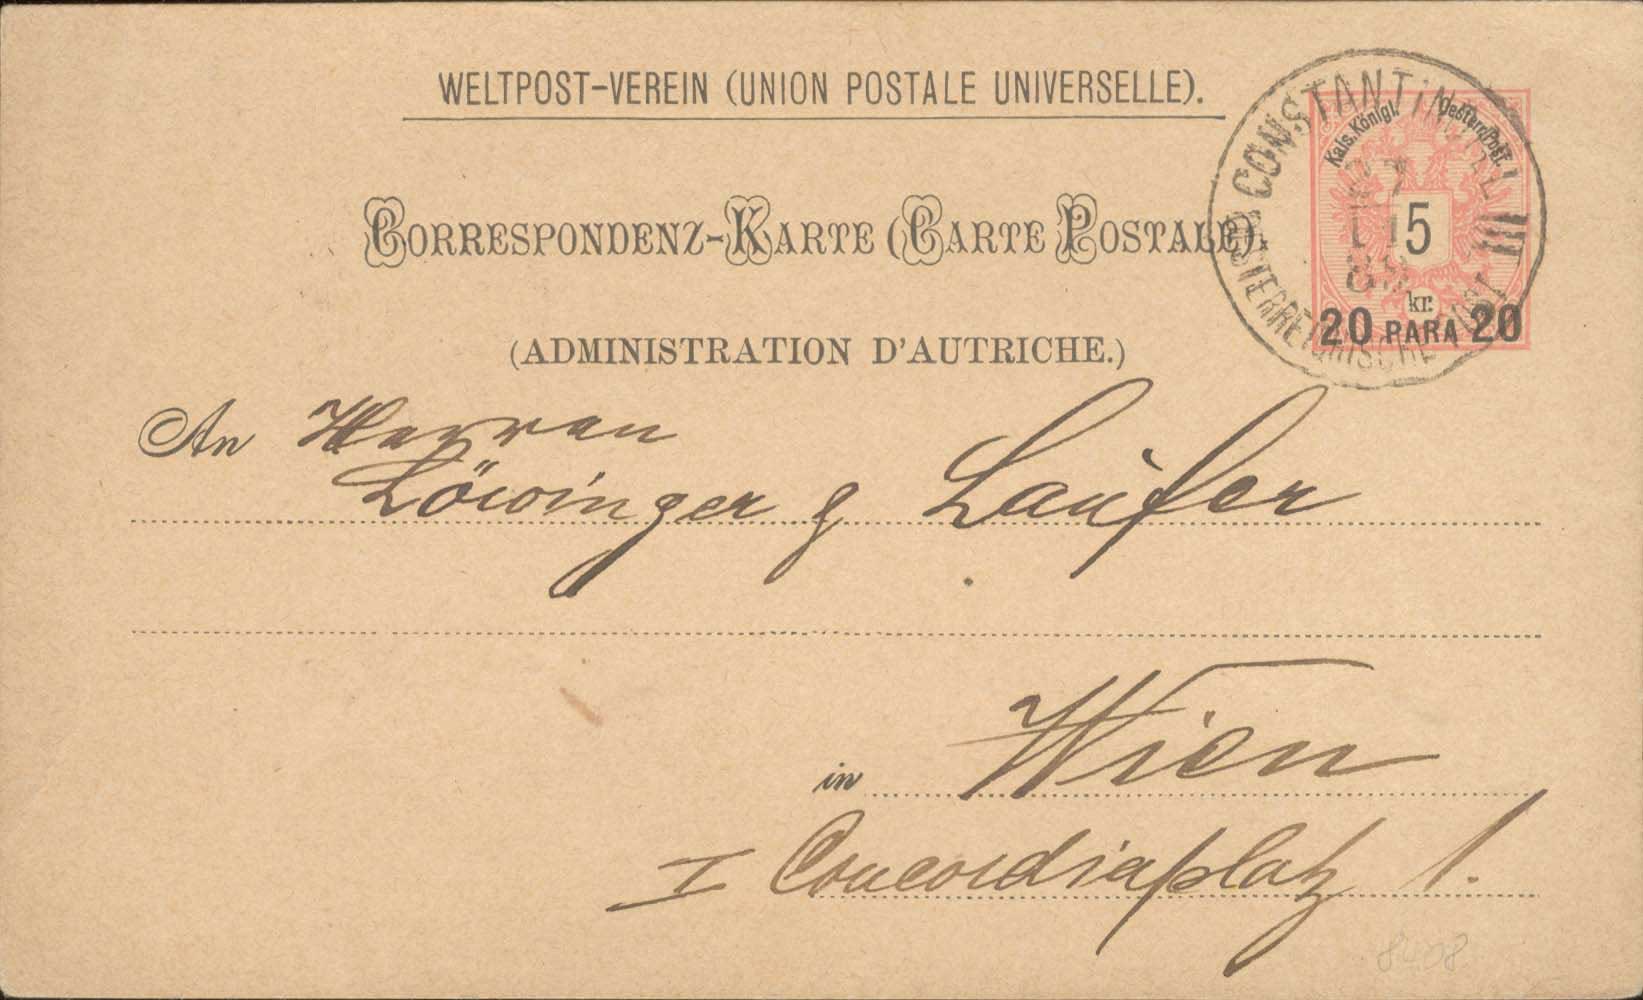 WELTPOST-VEREIN (UNION POSTALE UNIVERSELLE).
CORRESPONDENZ-KARTE (CARTE POSTALE).
(ADMINISTRATION D'AUTRICHE.)
Kais. Königl. Oesterr. Post.
5
kr.
20 PARA 20
CONSTANTINOPEL III
OESTERREICHISCHE POST
An Herren
Löwinger & Laufer
in Wien
I Concordiaplatz 1.
8408